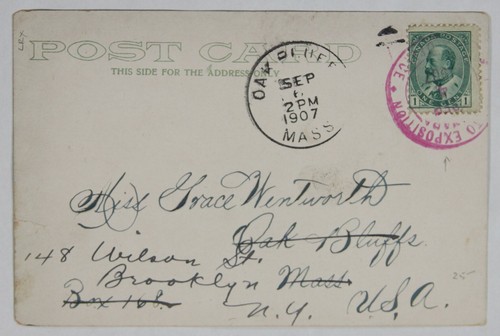 POST CARD
THIS SIDE FOR THE ADDRESS ONLY
OAK BLUFFS
SEP
2 PM
1907
MASS
CANADA POSTAGE
1 1
TO EXPOSITION
Miss Grace Wentworth
Oak Bluffs
148 Wilson St.
Brooklyn Mass
Box 168. N.Y. U.S.A.
25-